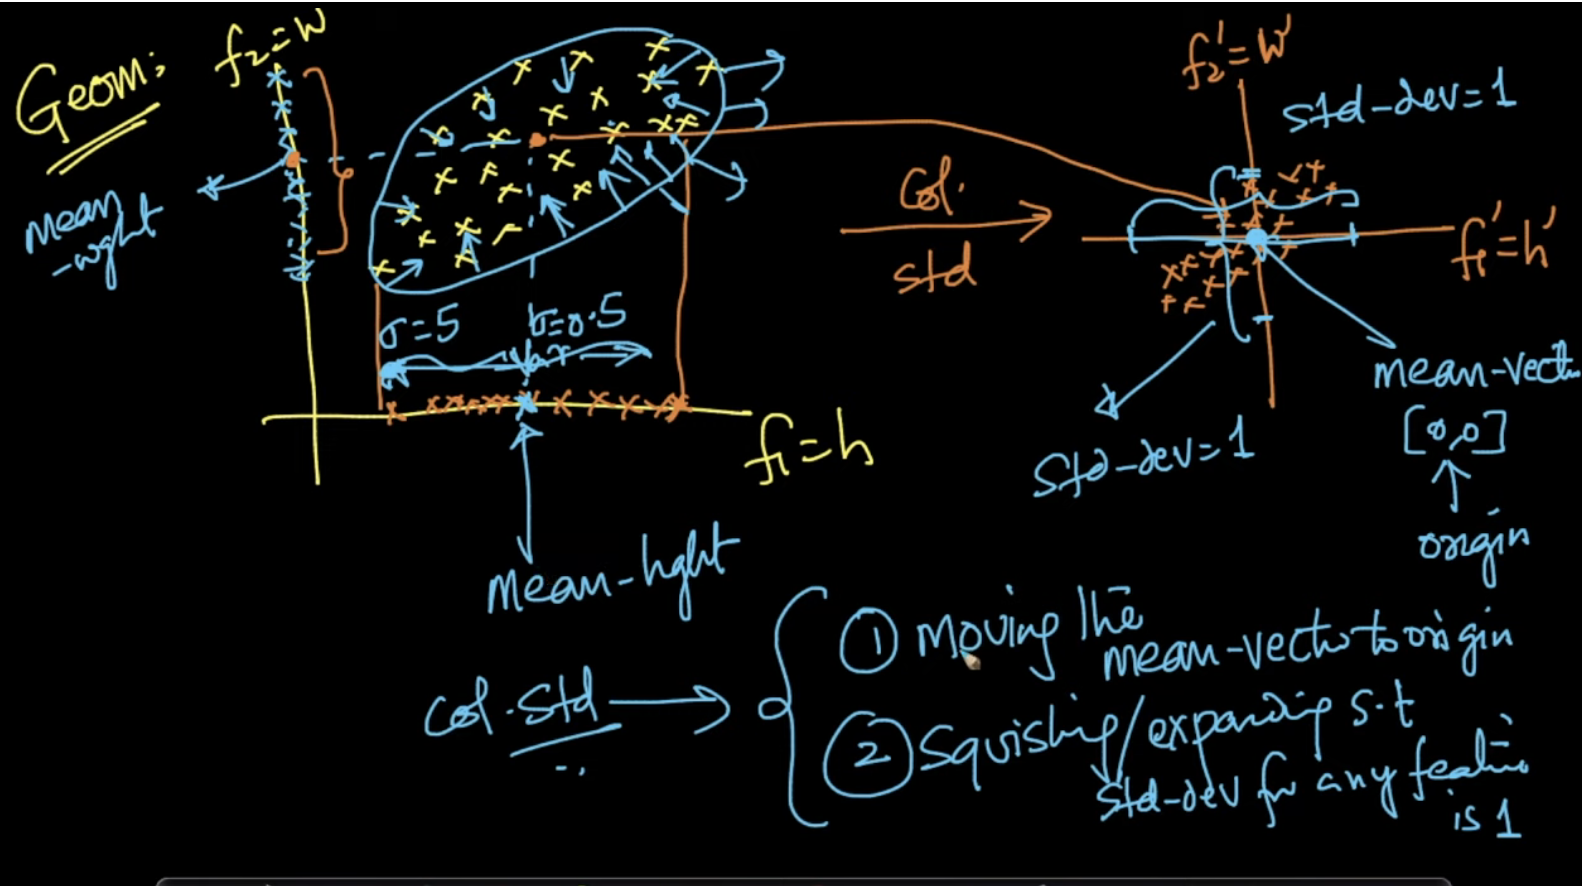 Geom:
f₂=w
mean
-wght
σ=5
σ=0.5
f₁=h
mean-hght
col.
std
f₂'=w'
std-dev=1
f₁'=h'
mean-vect
[0,0]
origin
std-dev=1
col.std
① Moving the
mean-vector to origin
② Squishing/expanding s.t
std-dev for any feature
is 1